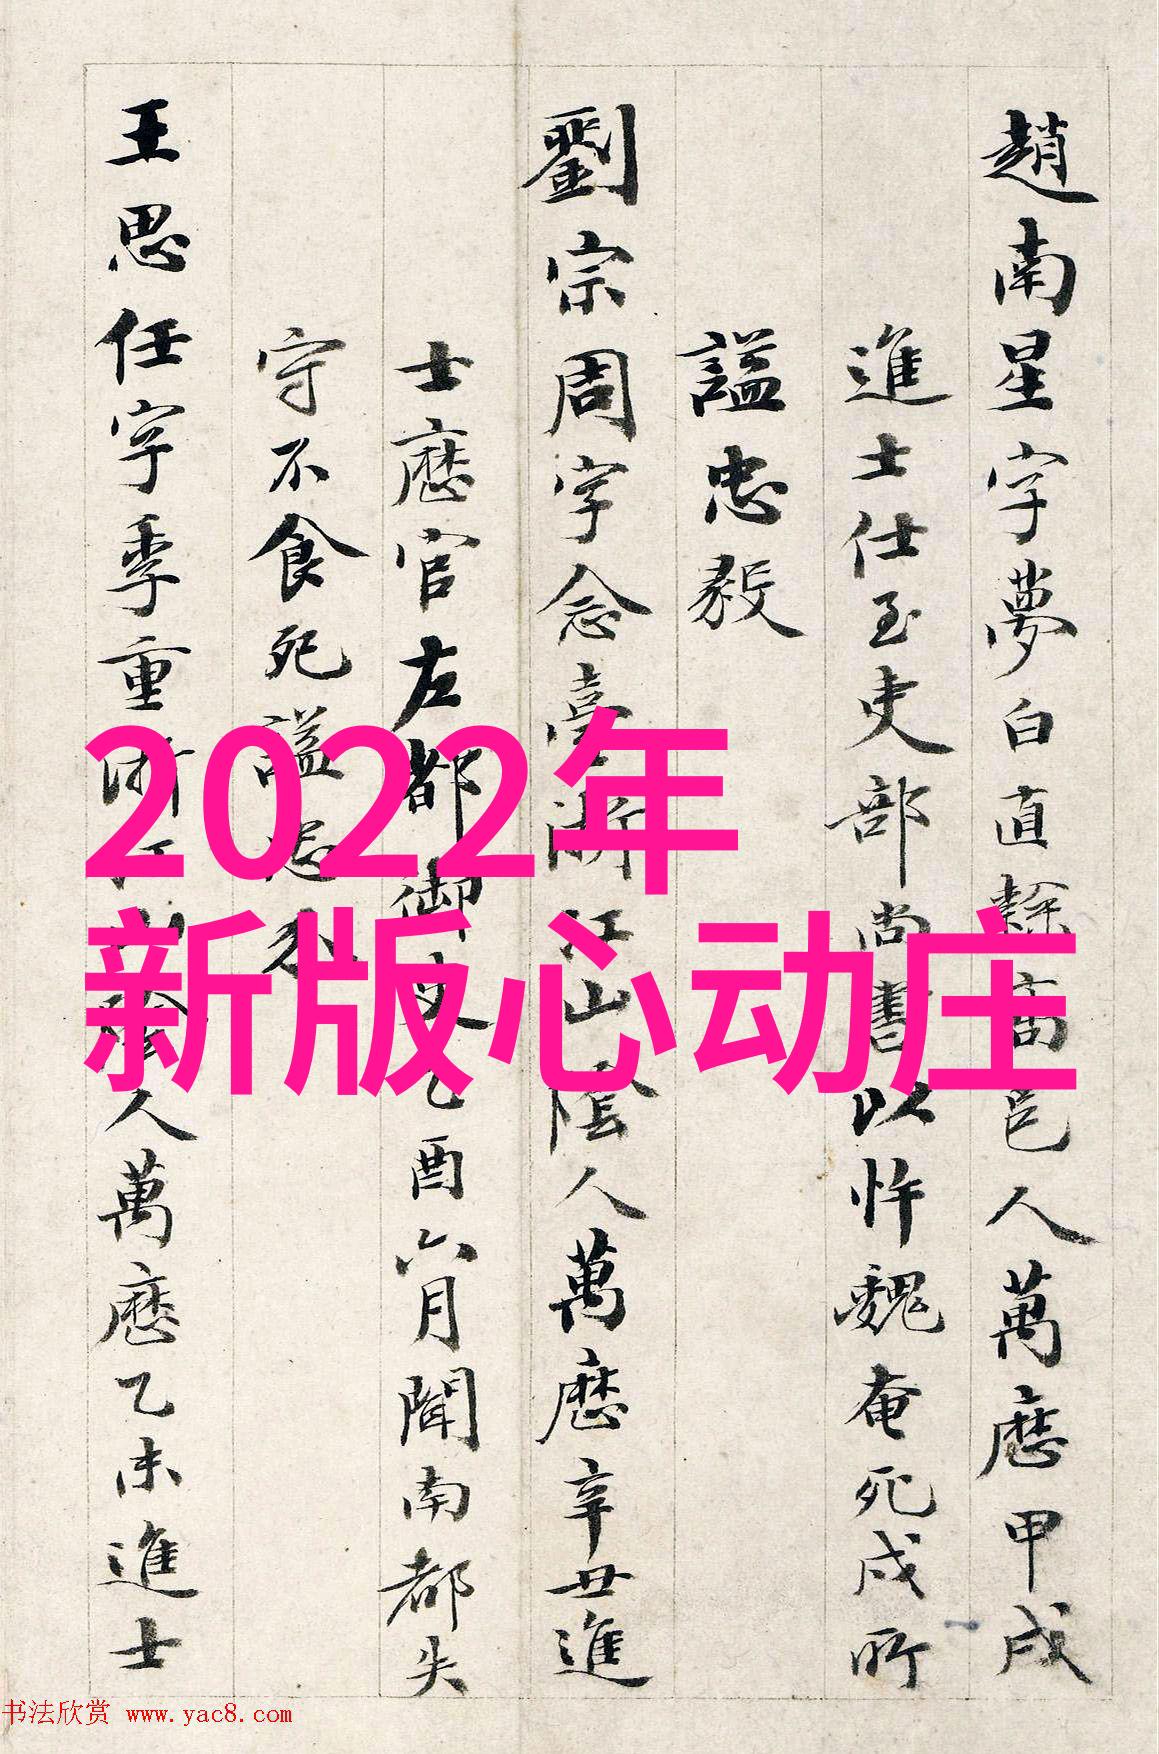 趙南星字夢白直隸高邑人萬歷甲戌
進士仕至吏部尚書以忤魏奄死戍所
謚忠毅
劉宗周字念臺浙江山陰人萬歷辛丑進
士歷官左都御史乙酉六月聞南都失
守不食死謚忠
王思任字季重浙江山陰人萬歷乙未進士
2022年
新版心动庄
书法欣赏 www.yac8.com